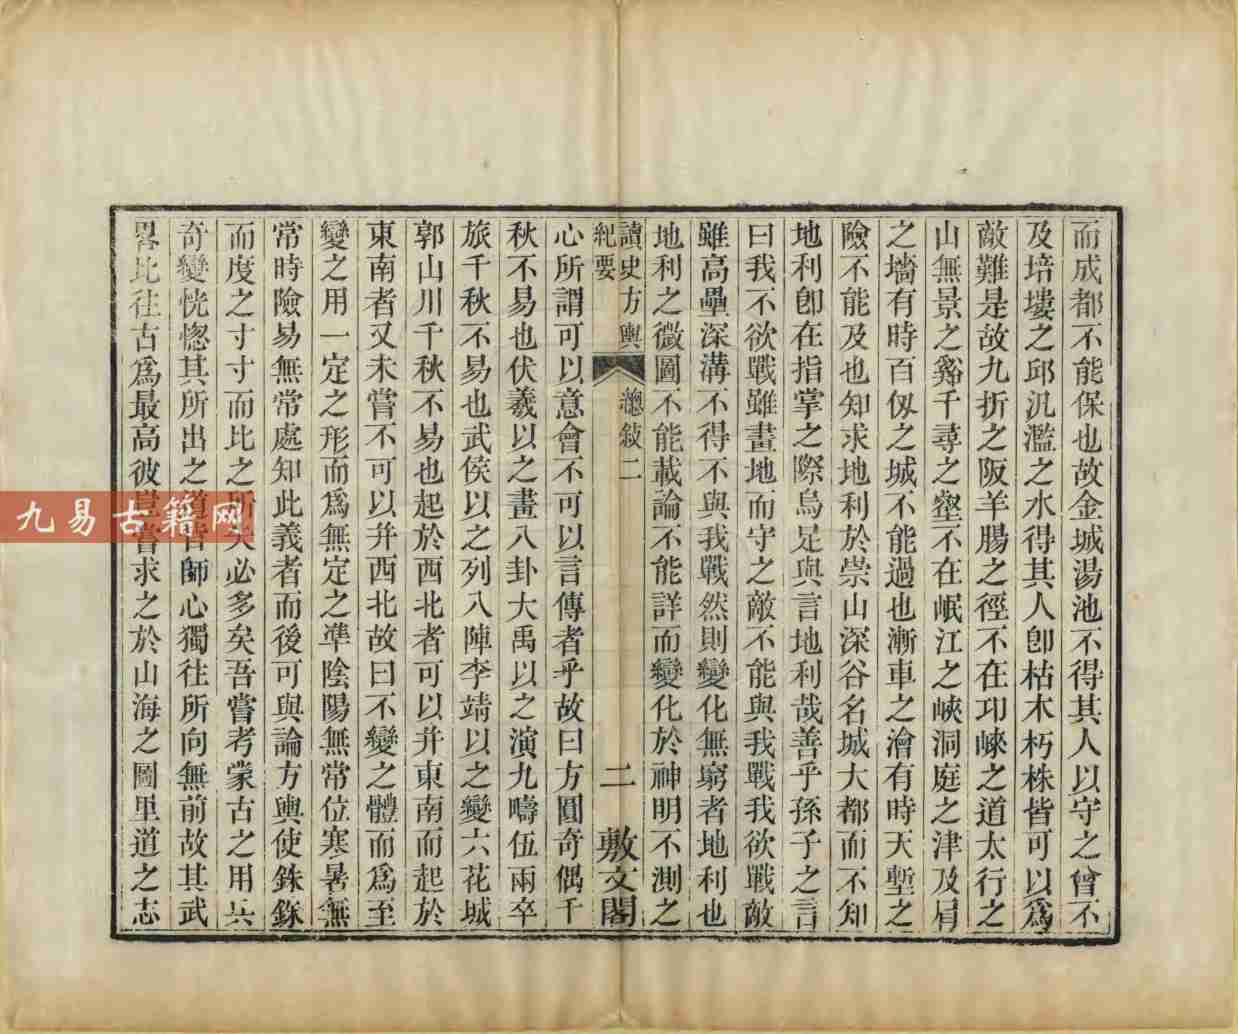 而成都不能保也故金城湯池不得其人以守之曾不
及培塿之邱汎濫之水得其人卽枯木朽株皆可以爲
敵難是故九折之阪羊腸之徑不在邛崍之道太行之
山無景之谿千尋之壑不在岷江之峽洞庭之津及肩
之墻有時百仭之城不能過也漸車之澮有時天塹之
險不能及也知求地利於崇山深谷名城大都而不知
地利卽在指掌之際烏足與言地利哉善乎孫子之言
曰我不欲戰雖畫地而守之敵不能與我戰我欲戰敵
雖高壘深溝不得不與我戰然則變化無窮者地利也
地利之微圖不能載論不能詳而變化於神明不測之
讀史方輿紀要
總敍二
二
敷文閣
心所謂可以意會不可以言傳者乎故曰方圓奇偶千
秋不易也伏羲以之畫八卦大禹以之演九疇伍兩卒
旅千秋不易也武侯以之列八陣李靖以之變六花城
郭山川千秋不易也起於西北者可以幷東南而起於
東南者又未嘗不可以幷西北故曰不變之體而爲至
變之用一定之形而爲無定之準陰陽無常位寒暑無
常時險易無常處知此義者而後可與論方輿使銖銖
而度之寸寸而比之所失必多矣吾嘗考蒙古之用兵
奇變恍惚其所出之道皆師心獨往所向無前故其武
畧比往古爲最高彼豈嘗求之於山海之圖里道之志
九易古籍网